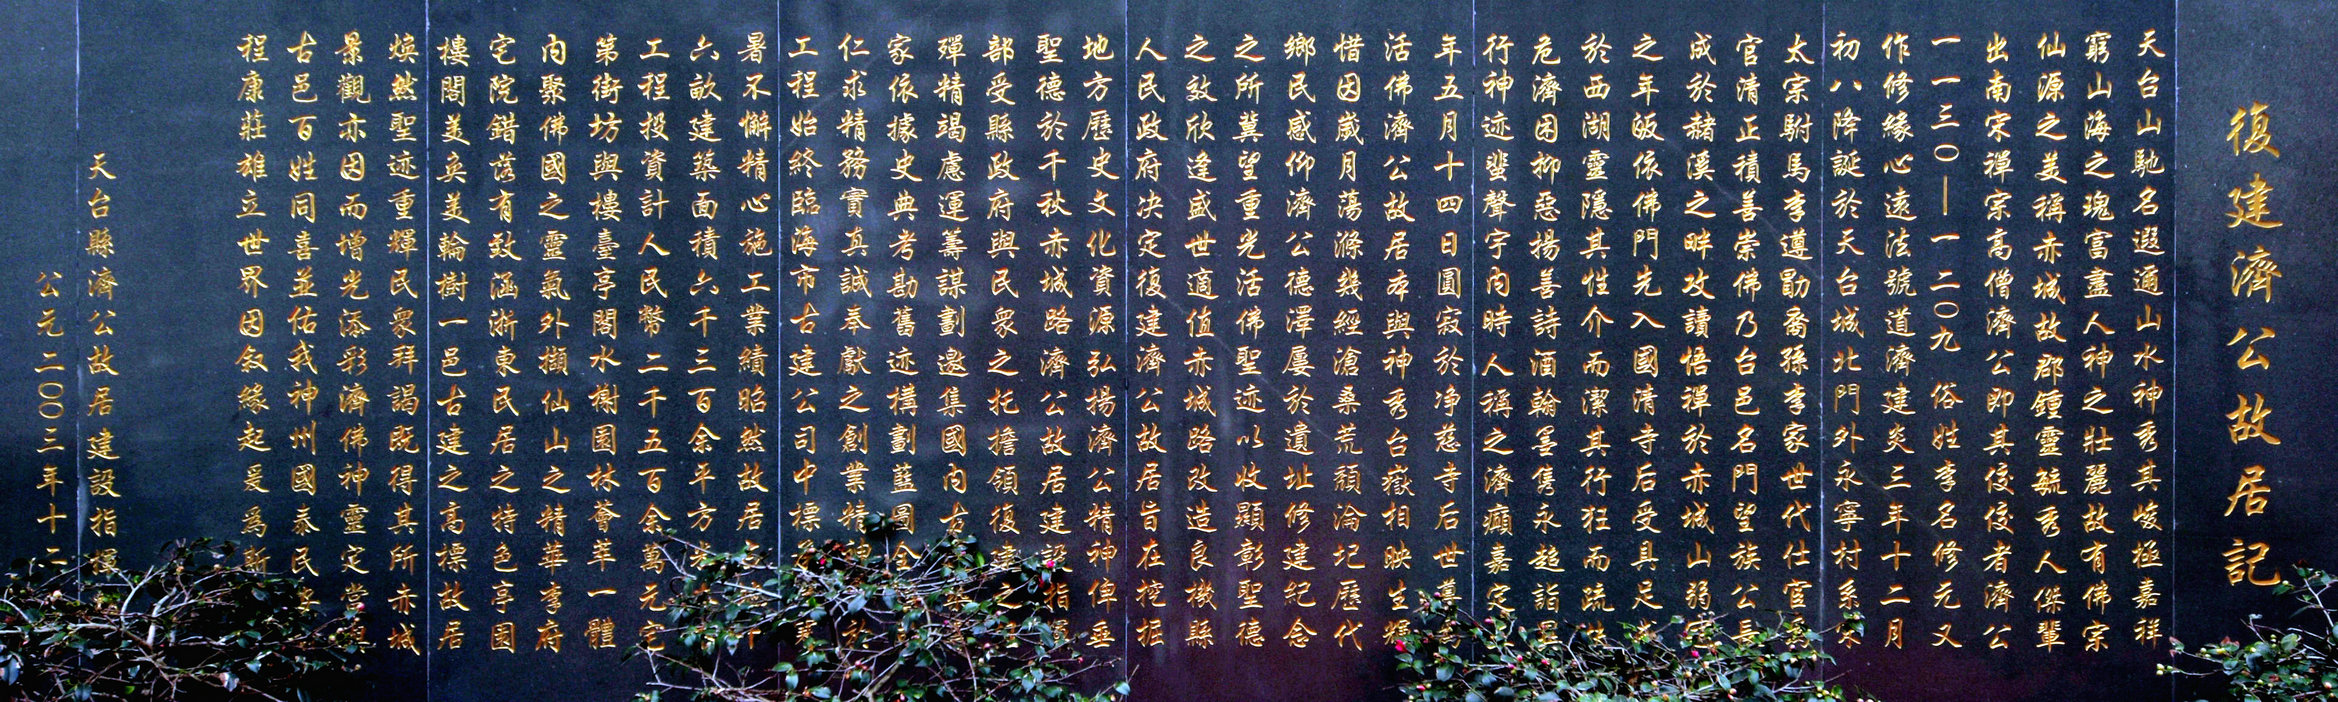 復建濟公故居記
天台山馳名遐邇山水神秀其峻極嘉祥
窮山海之瑰富盡人神之壯麗故有佛宗
仙源之美稱赤城故郡鍾靈毓秀人傑輩
出南宋禪宗高僧濟公即其佼佼者濟公
一一三〇—一二〇九俗姓李名修元又
作修緣心遠法號道濟建炎三年十二月
初八降誕於天台城北門外永寧村系宋
太宗駙馬李遵勖裔孫李家世代仕宦
官清正積善崇佛乃台邑名門望族公長
成於赭溪之畔攻讀悟禪於赤城山弱冠
之年皈依佛門先入國清寺后受具足
於西湖靈隱其性介而潔其行狂而疏
危濟困抑惡揚善詩酒翰墨雋永超詣
行神迹蜚聲宇內時人稱之濟癲嘉定
年五月十四日圓寂於净慈寺后世
活佛濟公故居本與神秀台嶽相映生輝
惜因歲月蕩滌幾經滄桑荒頹淪圮歷代
鄉民感仰濟公德澤屢於遺址修建紀念
之所冀望重光活佛聖迹以收顯彰聖德
之效欣逢盛世適值赤城路改造良機縣
人民政府决定復建濟公故居旨在挖掘
地方歷史文化資源弘揚濟公精神俾垂
聖德於千秋赤城路濟公故居建設指
部受縣政府與民衆之托擔領復建之
殫精竭慮運籌謀劃邀集國內古
家依據史典考勘舊迹構劃藍圖全
仁求精務實真誠奉獻之創業精神於
工程始終臨海市古建公司中標
暑不懈精心施工業績昭然故居
六畝建築面積六千三百余平方
工程投資計人民幣二千五百余萬元宅
第街坊與樓臺亭閣水榭園林薈萃一體
内聚佛國之靈氣外擷仙山之精華李府
宅院錯落有致涵浙東民居之特色亭園
樓閣美奂美輪樹一邑古建之高標故居
焕然聖迹重輝民衆拜謁既得其所赤城
景觀亦因而增光添彩濟佛神靈定當
古邑百姓同喜並佑我神州國泰民安
程康莊雄立世界因叙緣起爰爲斯
天台縣濟公故居建設指揮
公元二〇〇三年十二